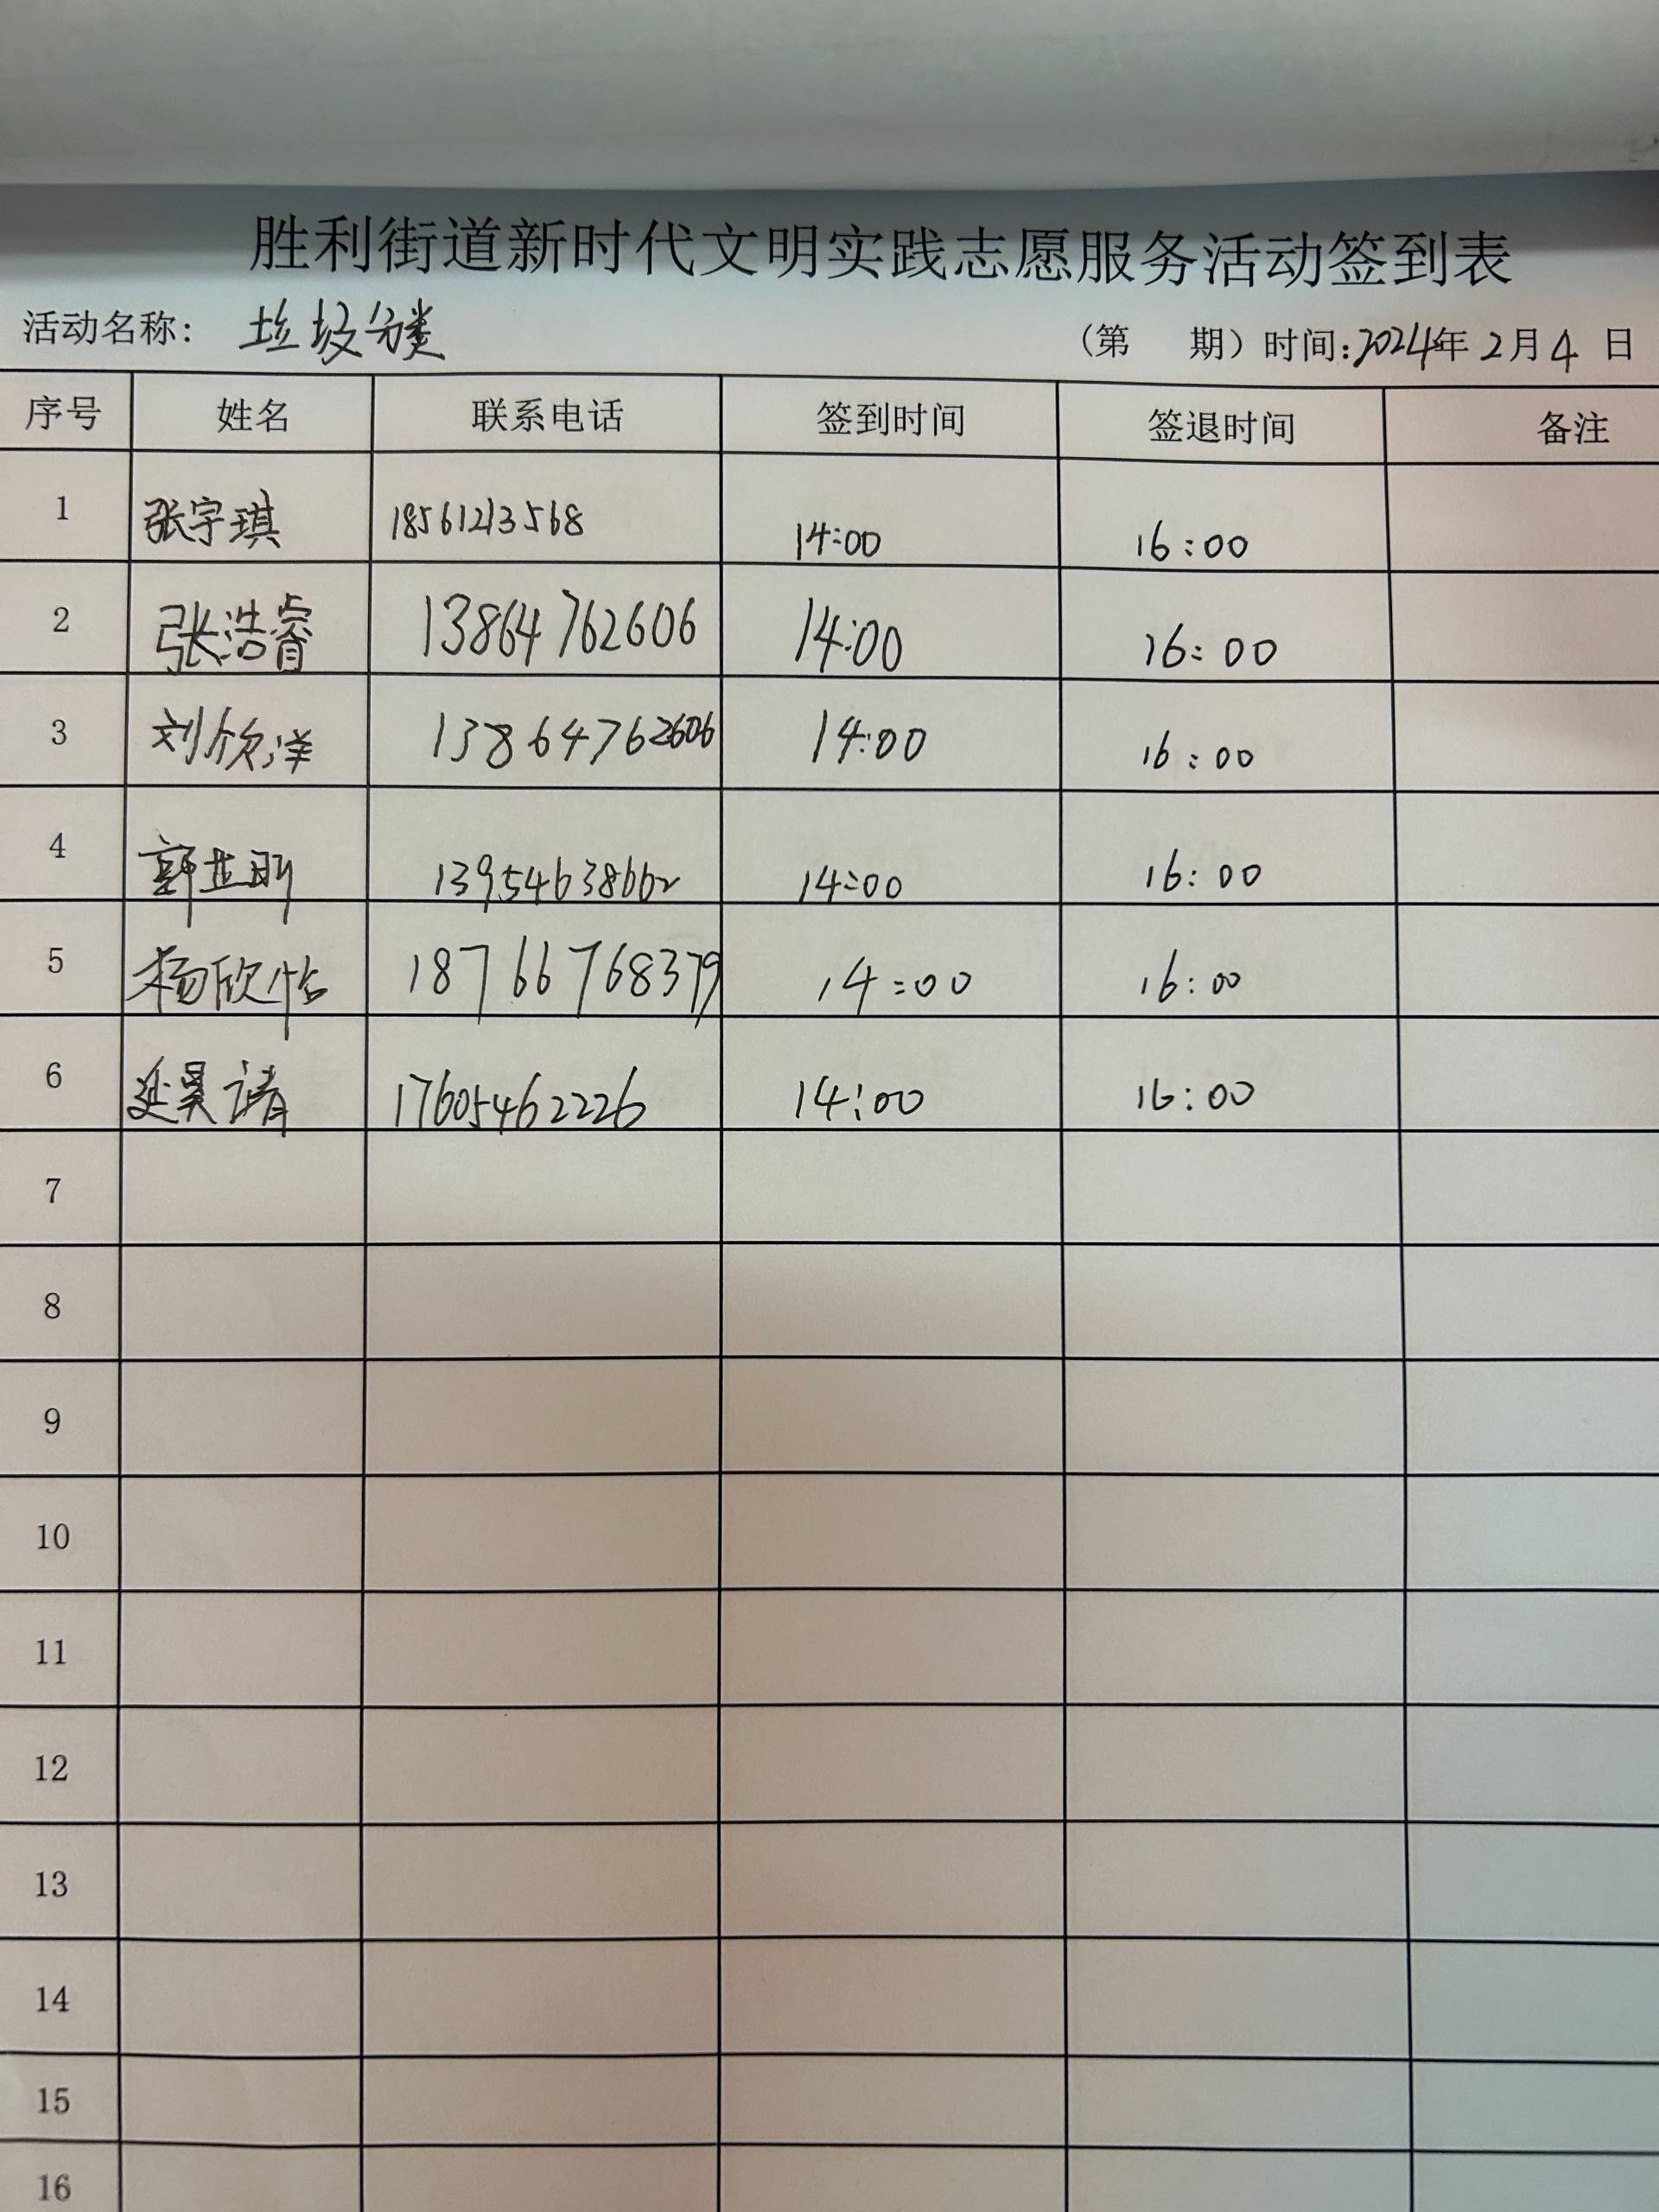 胜利街道新时代文明实践志愿服务活动签到表
活动名称：垃圾分类 （第 期）时间：2024年2月4日
序号 姓名 联系电话 签到时间 签退时间 备注
1 张宇琪 18561213568 14:00 16:00
2 张浩睿 13864762606 14:00 16:00
3 刘欣洋 13864762606 14:00 16:00
4 郭 13954638662 14:00 16:00
5 杨欣怡 18766768379 14:00 16:00
6 延昊 17605462226 14:00 16:00
7
8
9
10
11
12
13
14
15
16